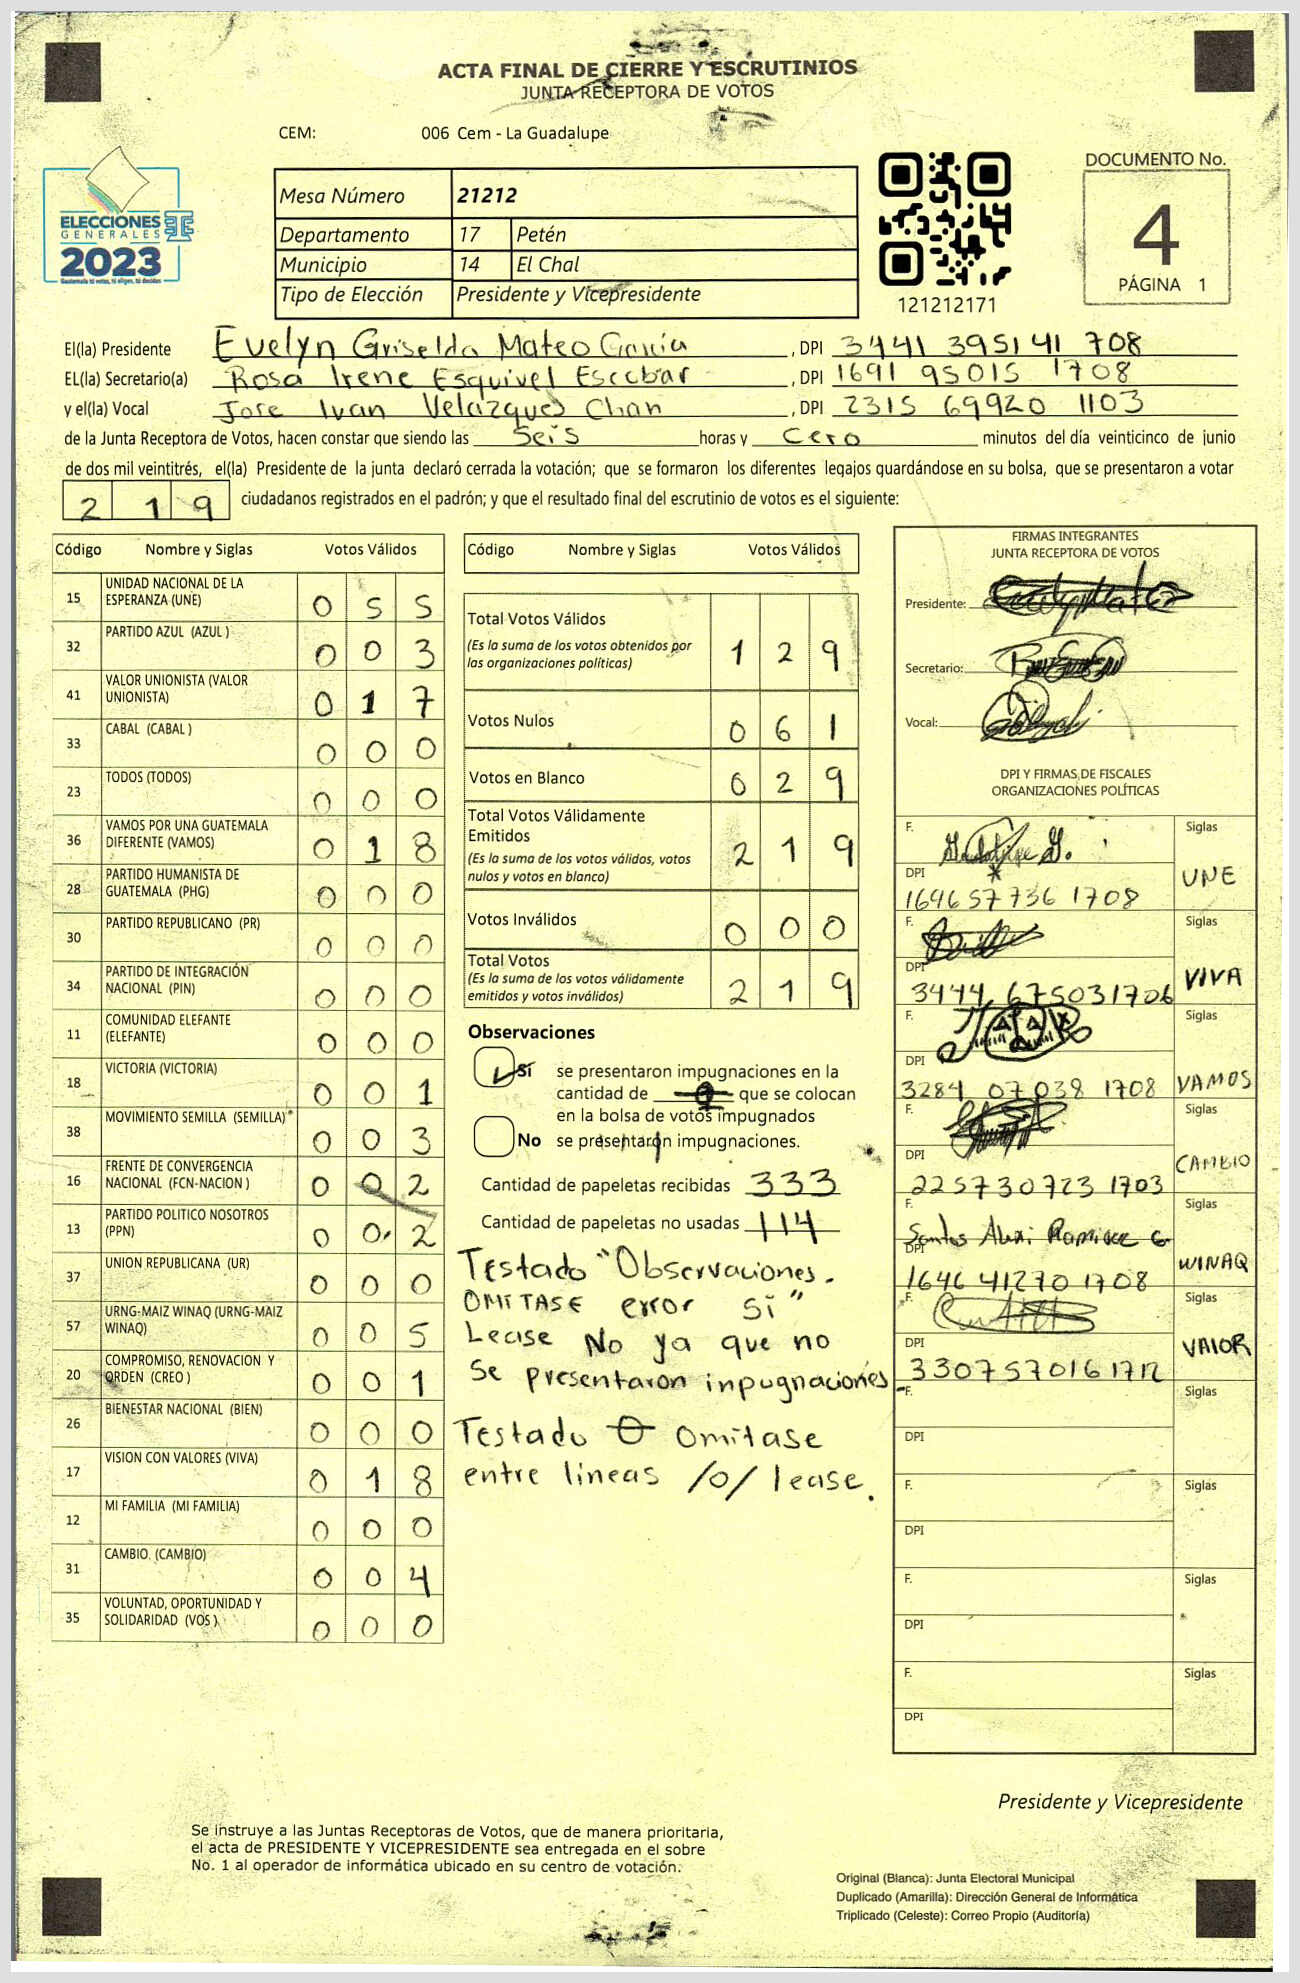 ACTA FINAL DE CIERRE Y ESCRUTINIOS
JUNTA RECEPTORA DE VOTOS
CEM: 006 Cem - La Guadalupe
ELECCIONES
GENERALES
2023
Guatemala tú votas, tú eliges, tú decides
Mesa Número 21212
Departamento 17 Petén
Municipio 14 El Chal
Tipo de Elección Presidente y Vicepresidente
121212171
DOCUMENTO No.
4
PÁGINA 1
El(la) Presidente Evelyn Griselda Mateo García , DPI 3441 39514 1 708
EL(la) Secretario(a) Rosa Irene Esquivel Escobar , DPI 1691 95015 1708
y el(la) Vocal Jose Ivan Velazques Chan , DPI 2315 69920 1103
de la Junta Receptora de Votos, hacen constar que siendo las Seis horas y Cero minutos del día veinticinco de junio
de dos mil veintitrés, el(la) Presidente de la junta declaró cerrada la votación; que se formaron los diferentes legajos guardándose en su bolsa, que se presentaron a votar
2 1 9 ciudadanos registrados en el padrón; y que el resultado final del escrutinio de votos es el siguiente:
Código Nombre y Siglas Votos Válidos
15 UNIDAD NACIONAL DE LA ESPERANZA (UNE) 0 5 5
32 PARTIDO AZUL (AZUL ) 0 0 3
41 VALOR UNIONISTA (VALOR UNIONISTA) 0 1 7
33 CABAL (CABAL ) 0 0 0
23 TODOS (TODOS) 0 0 0
36 VAMOS POR UNA GUATEMALA DIFERENTE (VAMOS) 0 1 8
28 PARTIDO HUMANISTA DE GUATEMALA (PHG) 0 0 0
30 PARTIDO REPUBLICANO (PR) 0 0 0
34 PARTIDO DE INTEGRACIÓN NACIONAL (PIN) 0 0 0
11 COMUNIDAD ELEFANTE (ELEFANTE) 0 0 0
18 VICTORIA (VICTORIA) 0 0 1
38 MOVIMIENTO SEMILLA (SEMILLA) 0 0 3
16 FRENTE DE CONVERGENCIA NACIONAL (FCN-NACION ) 0 0 2
13 PARTIDO POLITICO NOSOTROS (PPN) 0 0 2
37 UNION REPUBLICANA (UR) 0 0 0
57 URNG-MAIZ WINAQ (URNG-MAIZ WINAQ) 0 0 5
20 COMPROMISO, RENOVACION Y ORDEN (CREO ) 0 0 1
26 BIENESTAR NACIONAL (BIEN) 0 0 0
17 VISION CON VALORES (VIVA) 0 1 8
12 MI FAMILIA (MI FAMILIA) 0 0 0
31 CAMBIO. (CAMBIO) 0 0 4
35 VOLUNTAD, OPORTUNIDAD Y SOLIDARIDAD (VOS ) 0 0 0
Código Nombre y Siglas Votos Válidos
Total Votos Válidos
(Es la suma de los votos obtenidos por
las organizaciones políticas) 1 2 9
Votos Nulos 0 6 1
Votos en Blanco 0 2 9
Total Votos Válidamente
Emitidos
(Es la suma de los votos válidos, votos
nulos y votos en blanco) 2 1 9
Votos Inválidos 0 0 0
Total Votos
(Es la suma de los votos válidamente
emitidos y votos inválidos) 2 1 9
Observaciones
Sí se presentaron impugnaciones en la
cantidad de 0 que se colocan
en la bolsa de votos impugnados
No se presentaron impugnaciones.
Cantidad de papeletas recibidas 333
Cantidad de papeletas no usadas 114
Testado "Observaciones.
OMITASE error Si"
Lease No ya que no
Se presentaron inpugnaciones
Testado 0 omitase
entre lineas /0/ lease.
FIRMAS INTEGRANTES
JUNTA RECEPTORA DE VOTOS
Presidente:
Secretario:
Vocal:
DPI Y FIRMAS DE FISCALES
ORGANIZACIONES POLÍTICAS
F. Siglas
DPI UNE
1646 57736 1708
F. Siglas
DPI VIVA
3444 67503 1706
F. Siglas
DPI
3284 07038 1708 VAMOS
F. Siglas
DPI CAMBIO
2257 30723 1703
F. Siglas
Santos Ramirez G
DPI WINAQ
1646 41270 1708
F. Siglas
DPI VALOR
3307 57016 1712
F. Siglas
DPI
F. Siglas
DPI
F. Siglas
DPI
F. Siglas
DPI
Presidente y Vicepresidente
Se instruye a las Juntas Receptoras de Votos, que de manera prioritaria,
el acta de PRESIDENTE Y VICEPRESIDENTE sea entregada en el sobre
No. 1 al operador de informática ubicado en su centro de votación.
Original (Blanca): Junta Electoral Municipal
Duplicado (Amarilla): Dirección General de Informática
Triplicado (Celeste): Correo Propio (Auditoría)